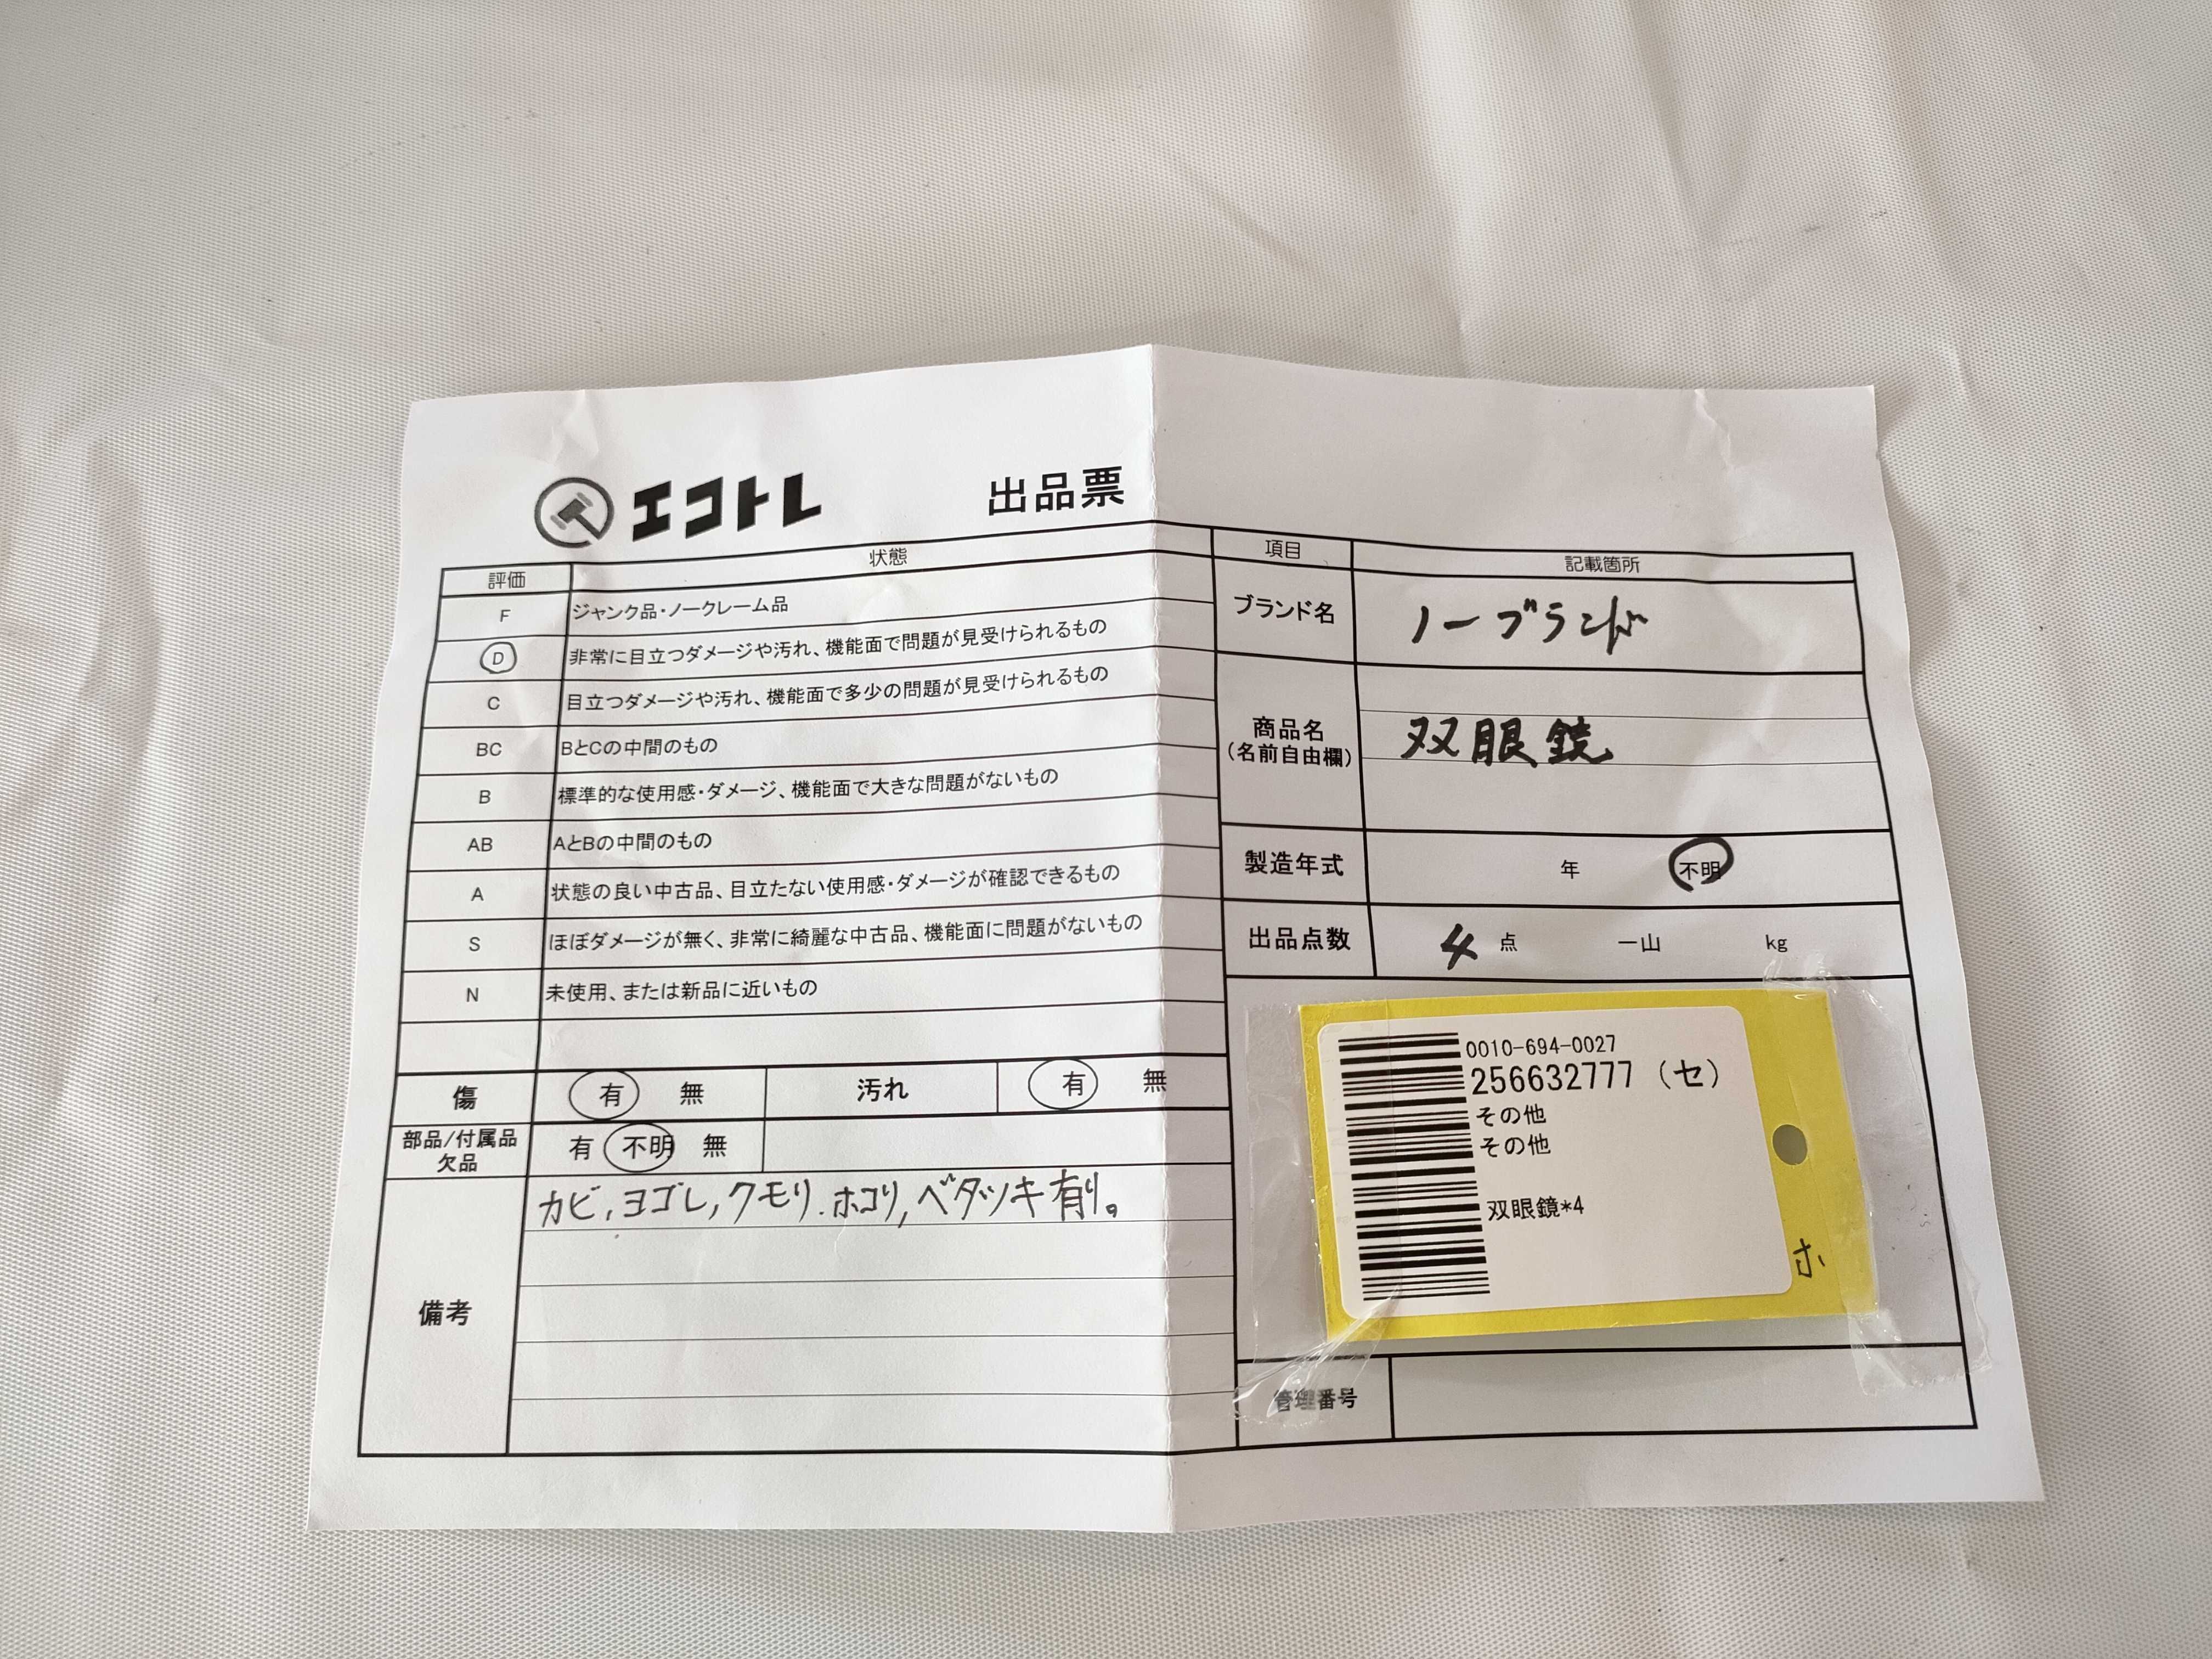 エコトレ 出品票
評価 状態
F ジャンク品・ノークレーム品
D 非常に目立つダメージや汚れ、機能面で問題が見受けられるもの
C 目立つダメージや汚れ、機能面で多少の問題が見受けられるもの
BC BとCの中間のもの
B 標準的な使用感・ダメージ、機能面で大きな問題がないもの
AB AとBの中間のもの
A 状態の良い中古品、目立たない使用感・ダメージが確認できるもの
S ほぼダメージが無く、非常に綺麗な中古品、機能面に問題がないもの
N 未使用、または新品に近いもの
傷 有 無 汚れ 有 無
部品/付属品
欠品 有 不明 無
備考 カビ,ヨゴレ,クモリ.ホコリ,ベタツキ有り。
項目 記載箇所
ブランド名 ノーブランド
商品名
(名前自由欄) 双眼鏡
製造年式 年 不明
出品点数 4 点 一山 kg
0010-694-0027
256632777 (セ)
その他
その他
双眼鏡*4
ホ
管理番号